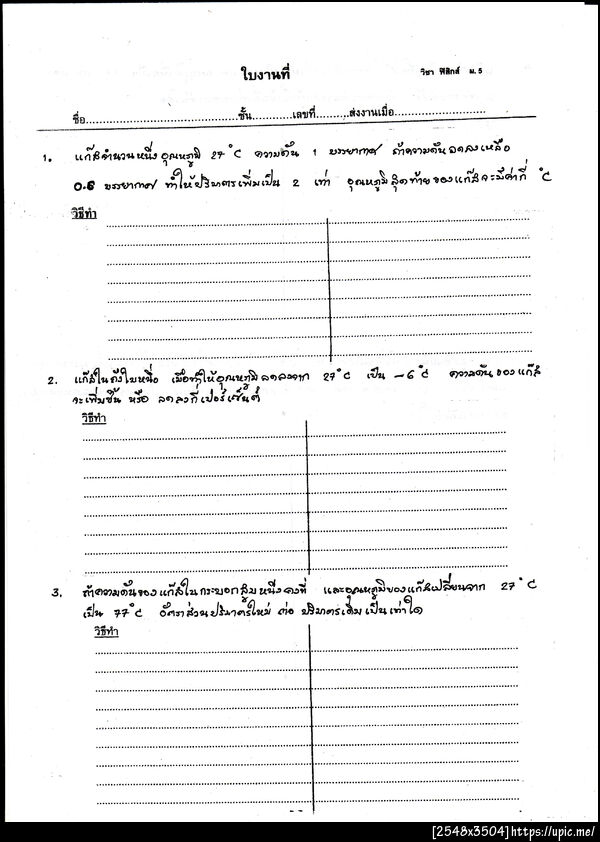 ใบงานที่
วิชา ฟิสิกส์ ม.5
ชื่อ..........ชั้น..........เลขที่..........ส่งงานเมื่อ..........
1. แก๊สจำนวนหนึ่งอุณหภูมิ 27 °C ความดัน 1 บรรยากาศ ถ้าความดันลดลงเหลือ
0.6 บรรยากาศ ทำให้ปริมาตรเพิ่มเป็น 2 เท่า อุณหภูมิสุดท้ายของแก๊สจะมีค่ากี่ °C
วิธีทำ
2. แก๊สในถังใบหนึ่ง เมื่อทำให้อุณหภูมิลดลงจาก 27 °C เป็น -6 °C ความดันของแก๊ส
จะเพิ่มขึ้น หรือ ลดลงกี่เปอร์เซ็นต์
วิธีทำ
3. ถ้าความดันของแก๊สในกระบอกสูบหนึ่งคงที่ และอุณหภูมิของแก๊สเปลี่ยนจาก 27 °C
เป็น 77 °C อัตราส่วนปริมาตรใหม่ ต่อ ปริมาตรเดิมเป็นเท่าใด
วิธีทำ
[2548x3504]https://upic.me/